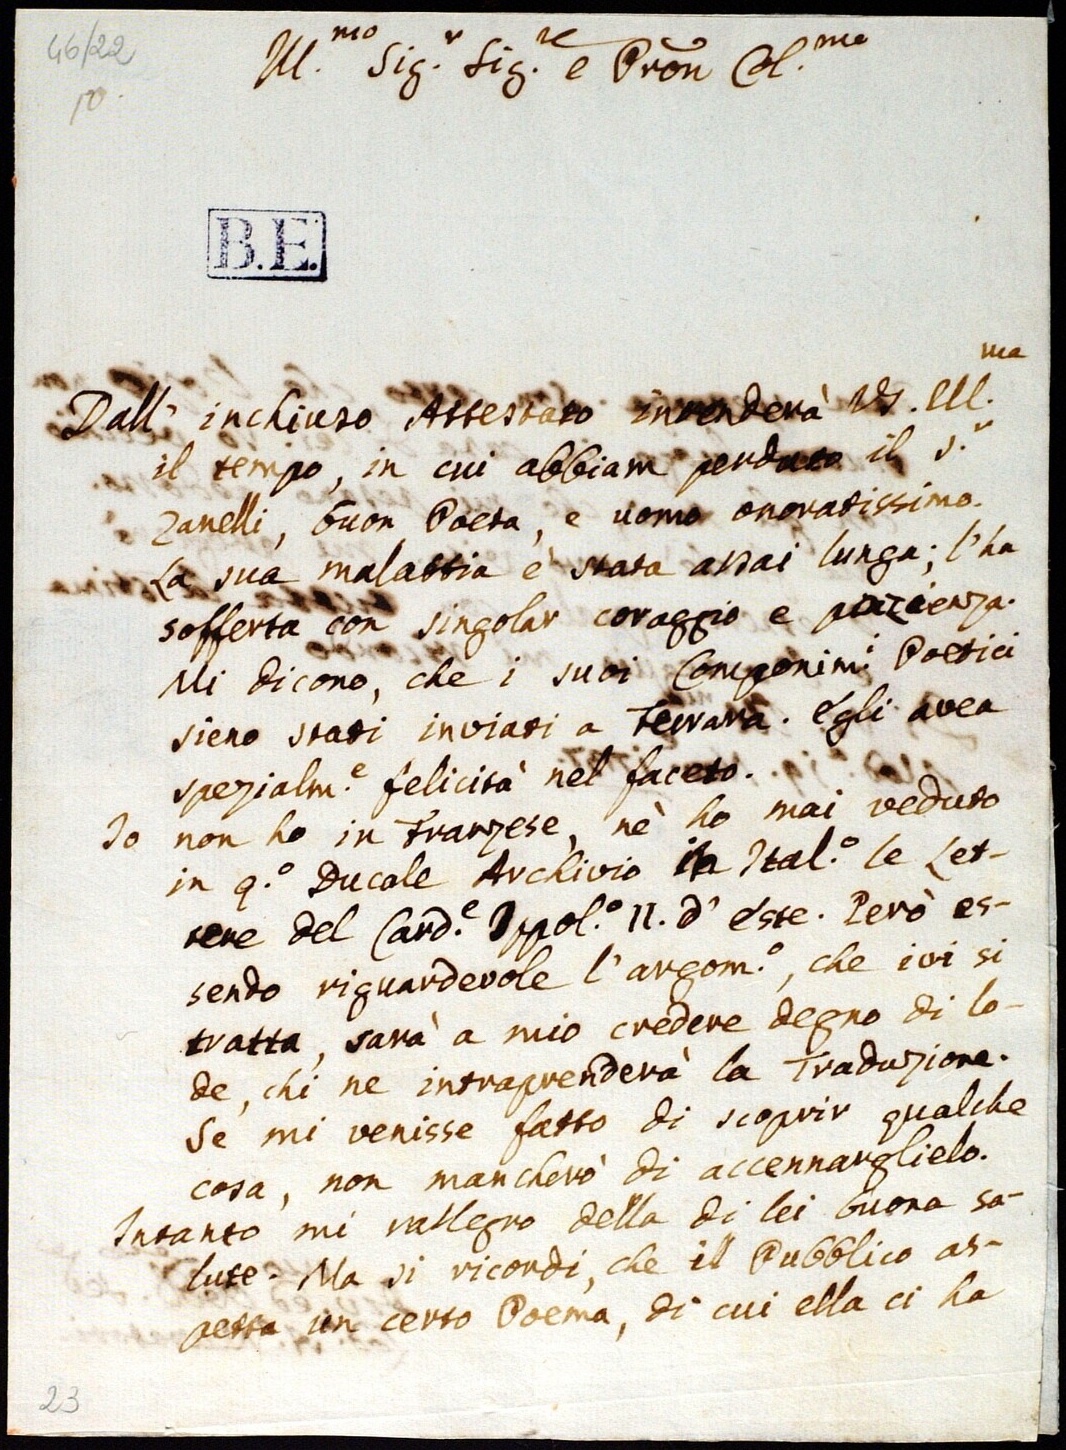 46/22
10.
Ill.mo Sig.r Sig.re e Pron Col.mo
B.E.
Dall' inchiuso Attestato intenderà VS. Ill.ma
il tempo, in cui abbiam perduto il S.r
Zanelli, buon Poeta, e uomo onoratissimo.
La sua malattia è stata assai lunga; l'ha
sofferta con singolar coraggio e pazienza.
Mi dicono, che i suoi Componim.i Poetici
sieno stati inviati a Ferrara. Egli avea
spezialm.e felicità nel faceto.
Io non ho in Franzese, nè ho mai veduto
in q.o Ducale Archivio in Ital.o le Let-
tere del Card.e Ippol.o II. d'Este. Però es-
sendo riguardevole l'argom.o, che ivi si
tratta, sarà a mio credere degno di lo-
de, chi ne intraprenderà la Traduzione.
Se mi venisse fatto di scoprir qualche
cosa, non mancherò di accennarglielo.
Intanto mi rallegro della di lei buona sa-
lute. Ma si ricordi, che il Pubblico as-
petta un certo Poema, di cui ella ci ha
23